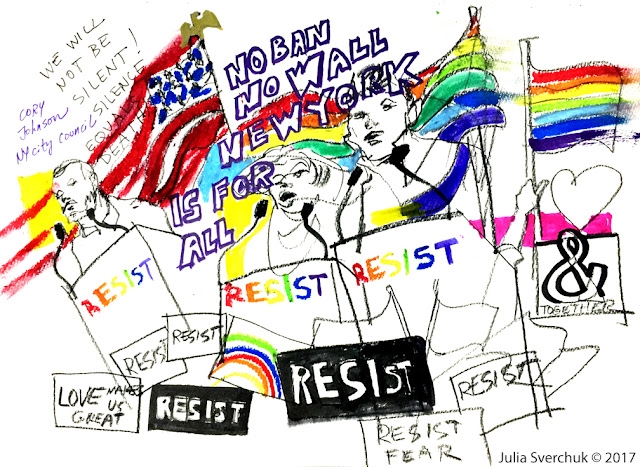 WE WILL
NOT BE
SILENT!
SILENCE
EQUALS
DEATH
CORY
Johnson
NY city council
NO BAN
NO WALL
NEW YORK
IS FOR
ALL
RESIST
RESIST
RESIST
&
TOGETHER
RESIST
RESIST
RESIST
RESIST
LOVE MAKES
US
GREAT
RESIST
RESIST
FEAR
Julia Sverchuk © 2017